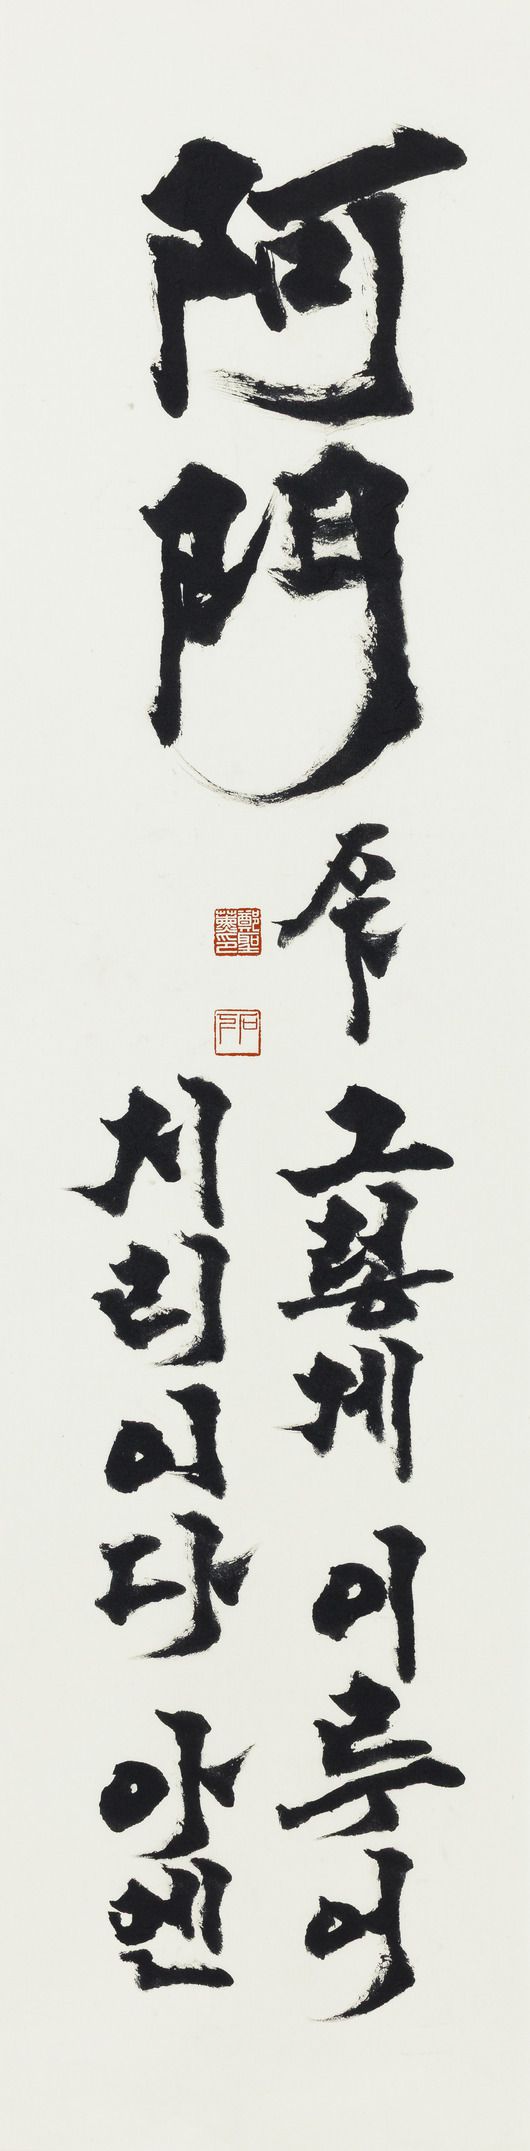 阿門
그렇게 이루어
지리이다 아멘